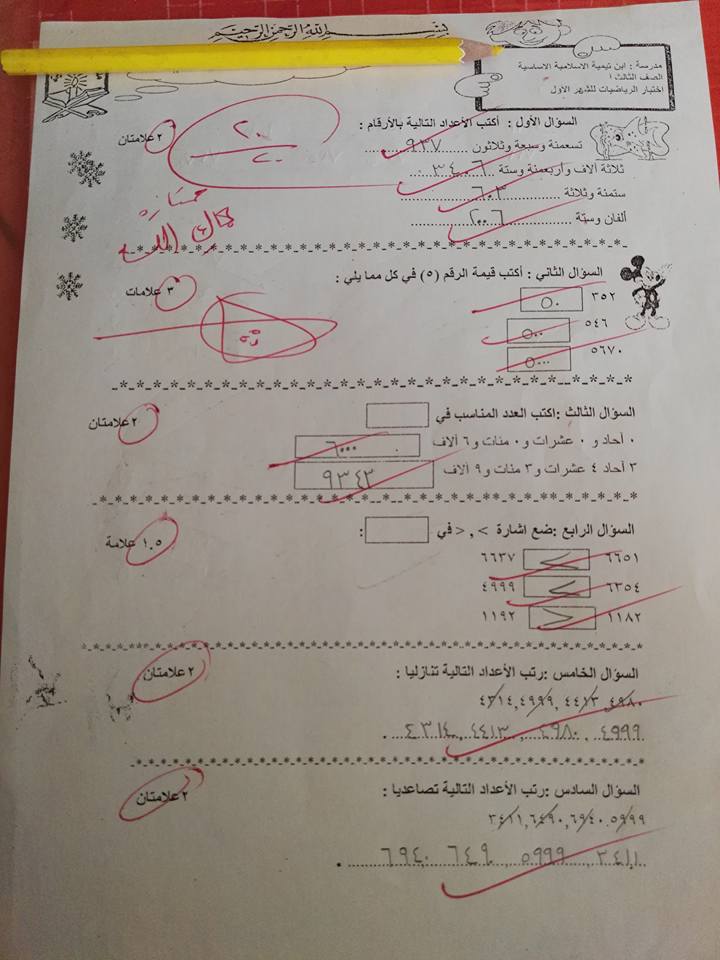 بسم الله الرحمن الرحيم
مدرسة : ابن تيمية الاسلامية الاساسية
الصف الثالث ا
اختبار الرياضيات للشهر الاول
السؤال الأول : أكتب الأعداد التالية بالأرقام :
٢ علامتان
٢٠
٢٠
تسعمئة وسبعة وثلاثون ٩٣٧
ثلاثة آلاف وأربعمئة وستة ٣٤٠٦
ستمئة وثلاثة ٦٠٣
ألفان وستة ٢٠٠٦
السؤال الثاني : أكتب قيمة الرقم (٥) في كل مما يلي :
٣ علامات
٣٥٢ ٥٠
٥٤٦ ٥٠٠
٥٦٧٠ ٥٠٠٠
السؤال الثالث :اكتب العدد المناسب في
٢ علامتان
٠ آحاد و ٠ عشرات و٠ مئات و٦ آلاف ٦٠٠٠
٣ آحاد ٤ عشرات و٣ مئات و٩ آلاف ٩٣٤٣
السؤال الرابع :ضع اشارة > , < في :
١.٥ علامة
٦٦٥١ > ٦٦٣٧
٦٣٥٤ > ٤٩٩٩
١١٨٢ < ١١٩٢
السؤال الخامس :رتب الأعداد التالية تنازليا :
٢ علامتان
٤٩٨٠, ٤٤١٣ ,٤٩٩٩ ,٤٣١٤
٤٩٩٩ , ٤٩٨٠ , ٤٤١٣ , ٤٣١٤ .
السؤال السادس :رتب الأعداد التالية تصاعديا :
٢ علامتان
٥٩٩٩ ,٦٩٤٠ ,٦٤٩٠ ,٣٤١١
٣٤١١ , ٥٩٩٩ ٦٤٩٠ ٦٩٤٠ .